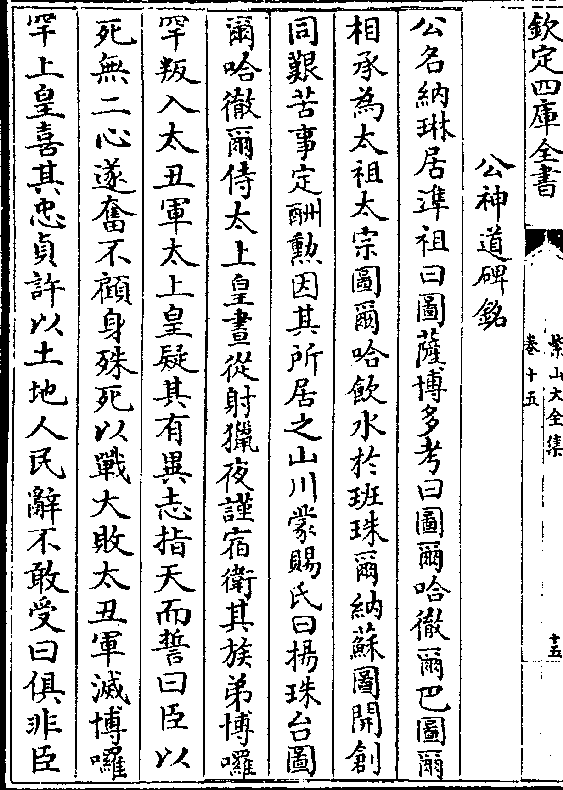 欽定四庫全書
紫山大全集
卷十五
十五
公神道碑銘
公名納琳居準祖曰圖薩博多考曰圖爾哈徹爾巴圖爾
相承為太祖太宗圖爾哈飲水於班珠爾納蘇圖開創
同艱苦事定酬勲因其所居之山川蒙賜氏曰揚珠台圖
爾哈徹爾侍太上皇晝從射獵夜謹宿衛其族弟博囉
罕叛入太丑軍太上皇疑其有異志指天而誓曰臣以
死無二心遂奮不顧身殊死以戰大敗太丑軍滅博囉
罕上皇喜其忠貞許以土地人民辭不敢受曰俱非臣